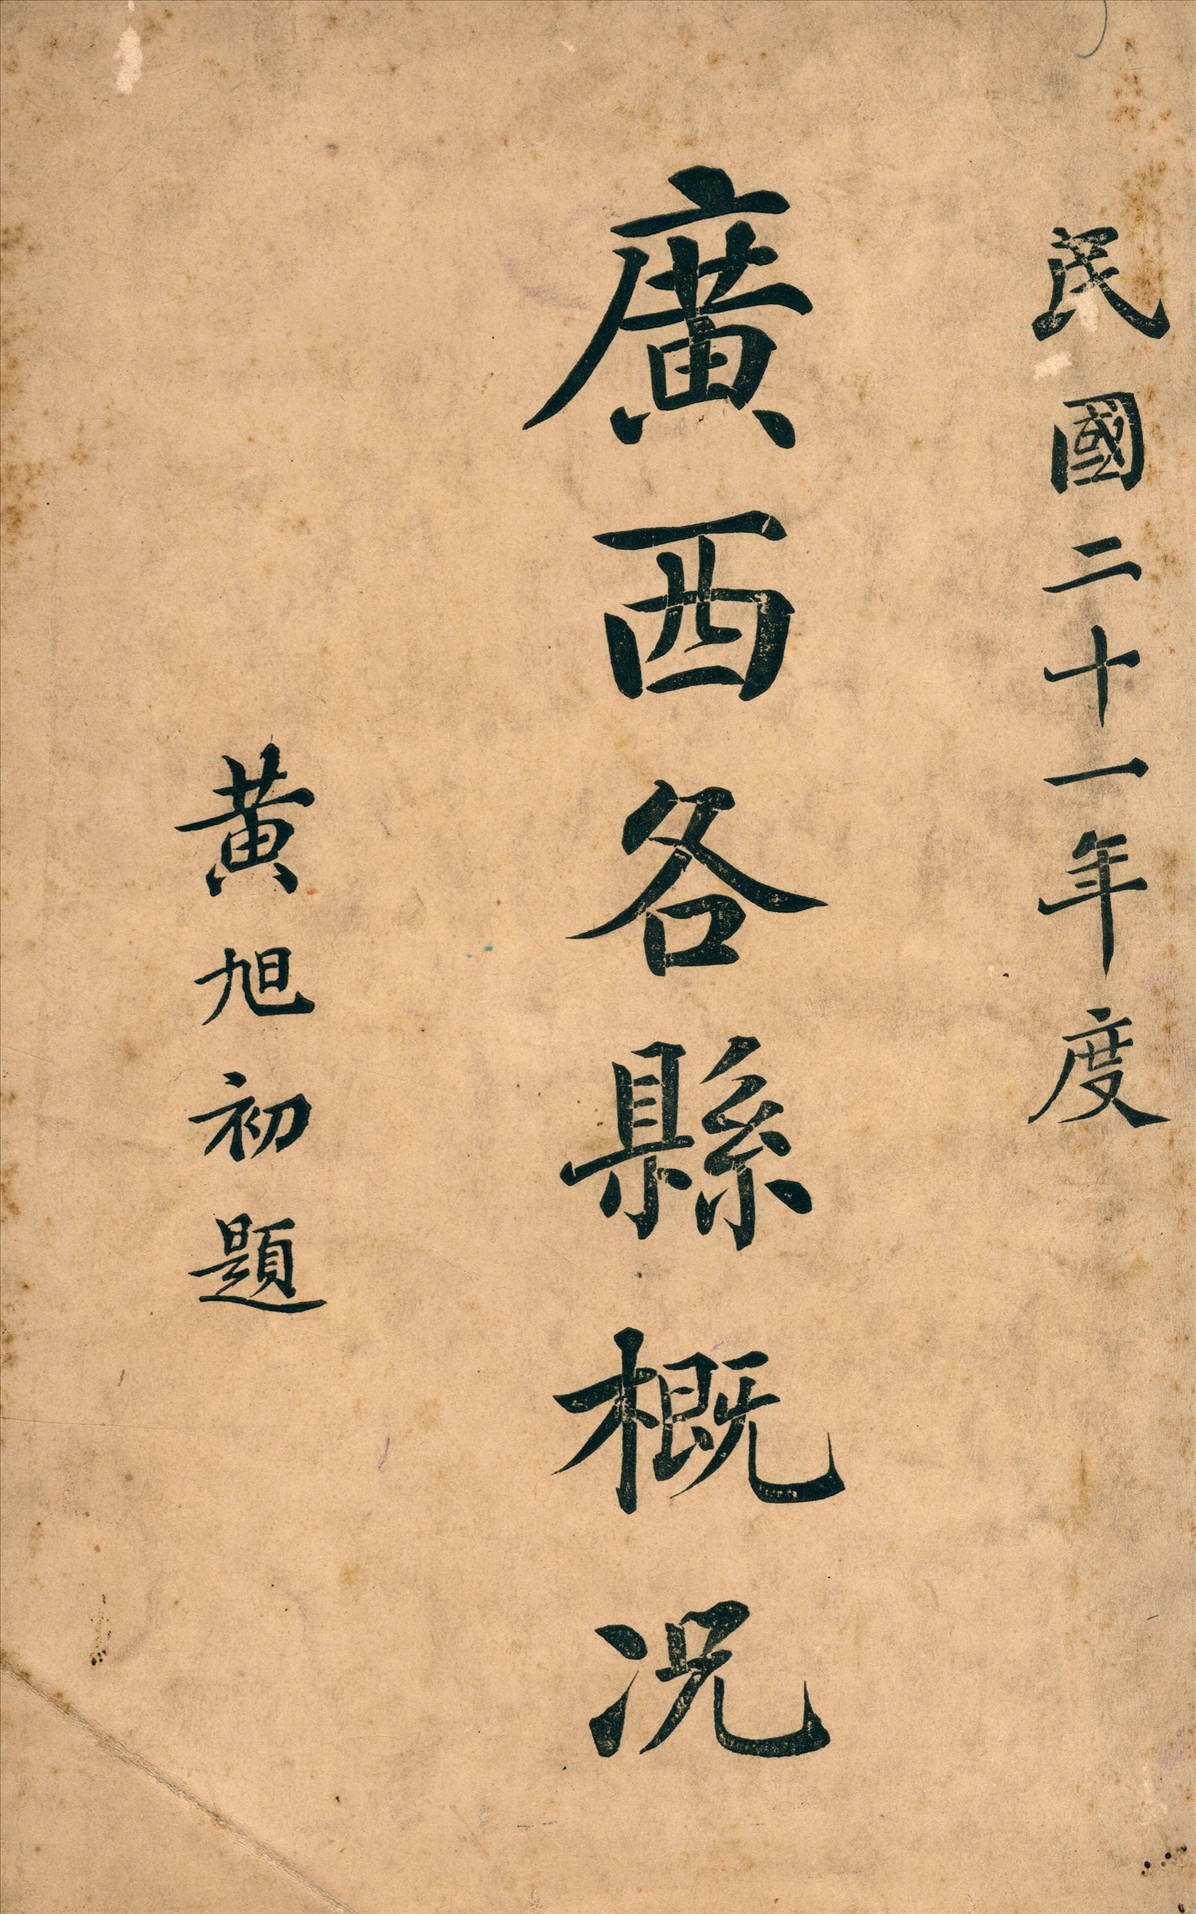 民國二十一年度
廣西各縣概况
黃旭初題